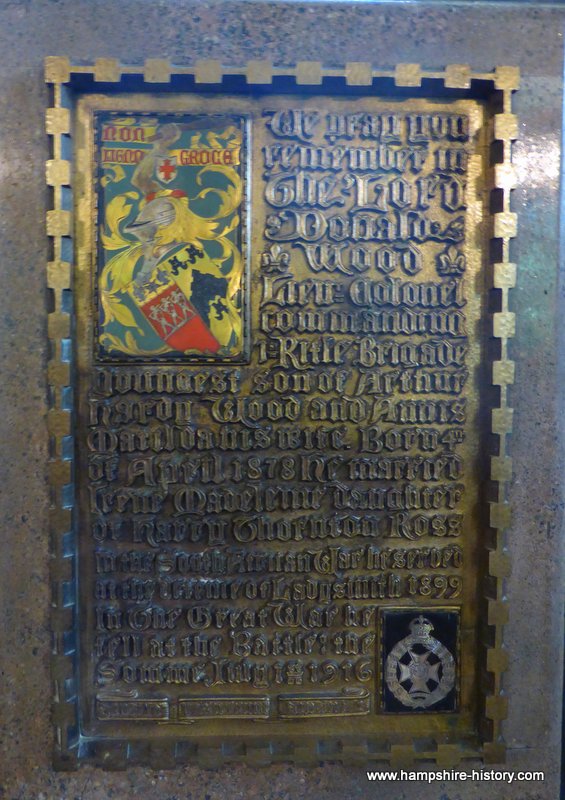 NON
GROGE
We pray you
remember in
The Lord
Donald
Wood
Lieu: Colonel
commanding
1: Rifle Brigade
youngest son of Arthur
Hardy Wood and Annis
Matilda his wife. Born 4TH
of April 1878 He married
Irene Madeleine daughter
of Harry Thornton Ross
in the South African War he served
at the defence of Ladysmith 1899
in The Great War he
fell at the Battle: the
Somme July 1ST 1916
www.hampshire-history.com